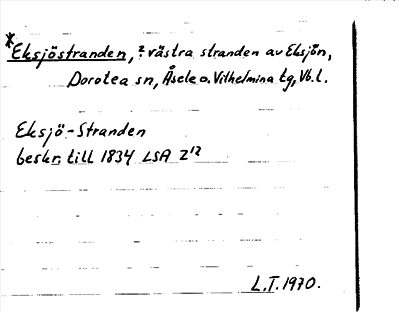 *Eksjöstranden, ? västra stranden av Eksjön,
Dorotea sn, Åsele o. Vilhelmina tg, Vb. l.
Eksjö-Stranden
beskr. till 1834 LSA Z¹²
L.T. 1970.